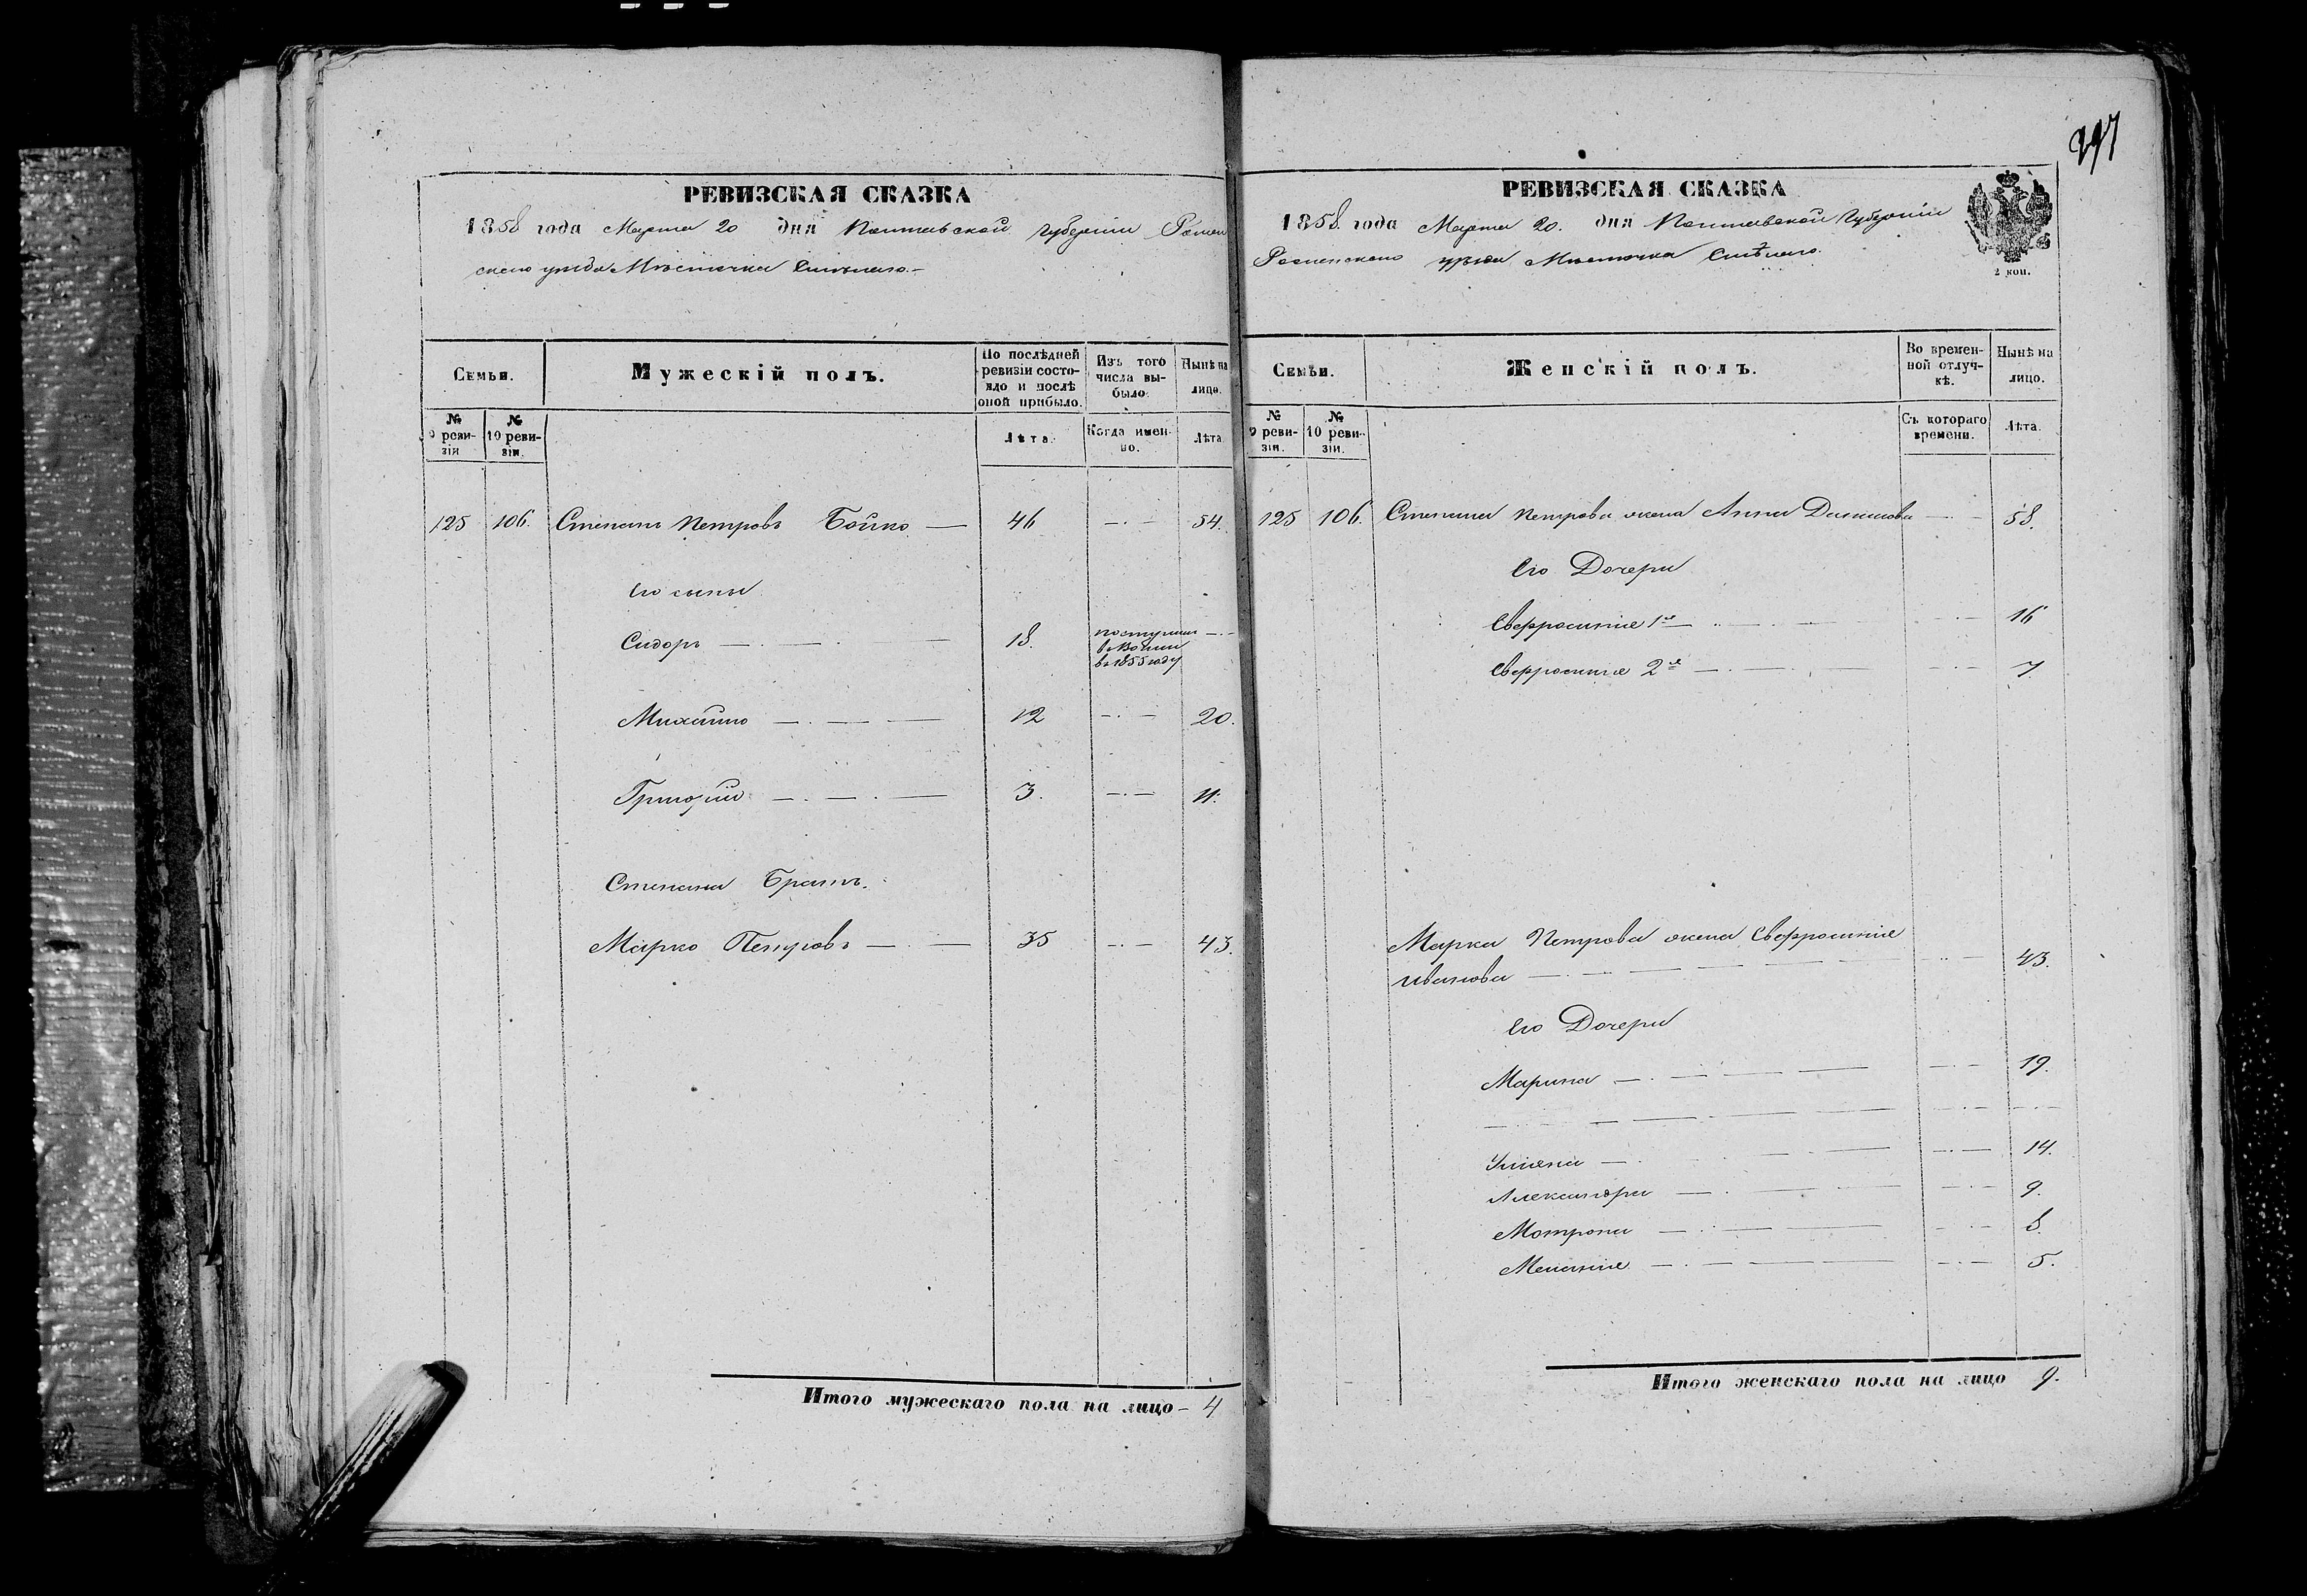 297
РЕВИЗСКАЯ СКАЗКА
1858 года Марта 20 дня Полтавской губерніи Ромен
скаго уѣзда Мѣстечка Смѣлаго.
Семьи.
Мужескій полъ.
По послѣдней
ревизіи состо-
яло и послѣ
оной прибыло.
Изъ того
числа вы-
было.
Нынѣ на
лицо.
№
9 реви-
зіи
№
10 реви-
зіи.
Лѣта.
Когда имен-
но.
Лѣта
125 106. Степанъ Петровъ Бойко — 46 —·— 54.
Его сыны
Сидоръ — 18. поступилъ —·—
в 1855 году
Михайло — 12 —·— 20.
Григорій — 3. —·— 11.
Степана Братъ.
Марко Петровъ — 35 —·— 43.
Итого мужескаго пола на лицо - 4
РЕВИЗСКАЯ СКАЗКА
1858. года Марта 20. дня Полтавской Губерніи
Роменскаго уѣзда Мѣстечка Смѣлаго.
2 коп.
Семьи.
Женскій полъ.
Во времен-
ной отлуч-
кѣ.
Нынѣ на
лицо.
№
9 реви-
зіи.
№
10 реви-
зіи.
Съ котораго
времени.
Лѣта.
125 106. Степана Петрова жена Анна Данилова — 58.
Его Дочери
Евфросинія 1я — 16
Евфросинія 2я — 7
Марка Петрова жена Евфросинія
Иванова — 43.
Его Дочери
Марина — 19.
Уліяна — 14.
Александра — 9.
Мотрона — 8.
Меланія — 5.
Итого женскаго пола на лицо 9.